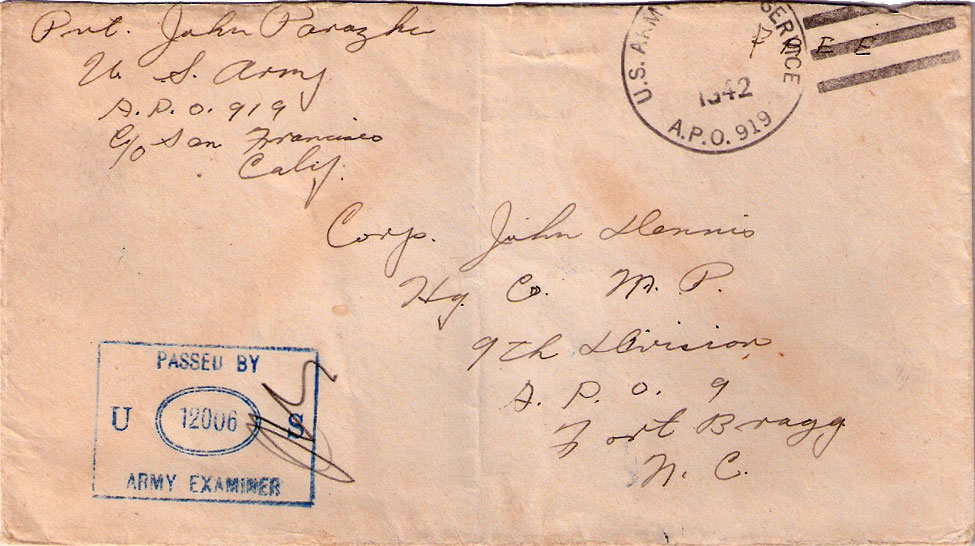 Pvt. John Parazke
U. S. Army
A.P.O. 919
c/o San Francisco
Calif.
U.S. ARMY SERVICE
1942
A.P.O. 919
FREE
Corp. John Dennis
Hq. Co. M. P.
9th Division
A. P. O. 9
Fort Bragg
N. C.
PASSED BY
U 12006 S
ARMY EXAMINER